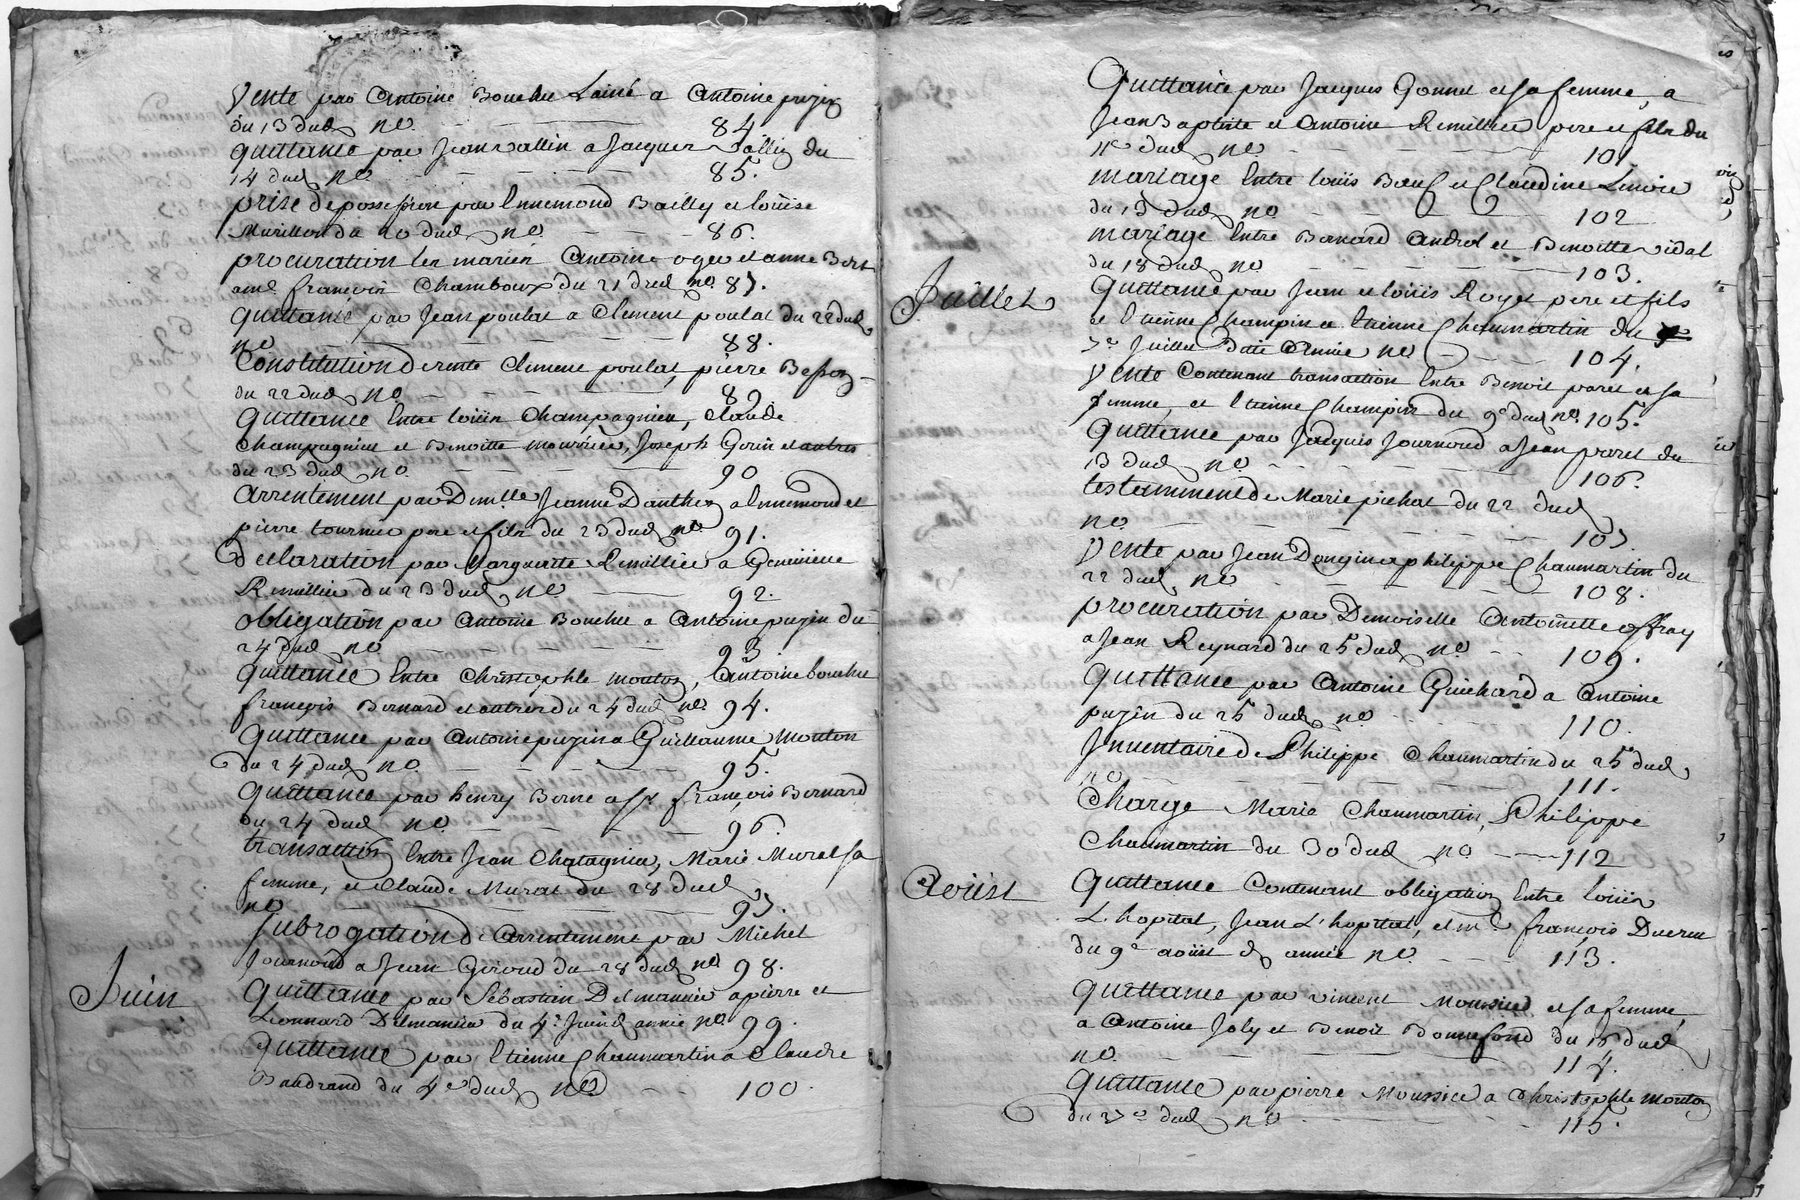 Vente par Antoine Bouchu Lainé a Antoine puzin
du 13 dud. no. 84
quittance par Jean vallin a Jacques vallin du
14 dud. no 85.
prise depossession par Ennemond Bailly et loüise
Murillon du 20 dud. no 86.
procuration les mariés Antoine ogier et anne Bert
a me. françois Chamboux du 21 dud no 87.
quittance par Jean poulat a Clement poulat du 22 dud.
no 88.
Constitution de rente Clement poulat, pierre Besson
du 22 dud. no 89
quittance Entre loüis Champagnieu, Claude
Champagnieu et Benoitte mourier, Joseph Gorin et autres
du 23 dud. no. 90
arrentement par Dmlle. Jeanne Danthon a Ennemond et
pierre tournier pere et fils du 23 dud. no 91.
Declaration par Marguerite Remillier a Genevieve
Remillier du 23 dud. no 92.
obligation par Antoine Bouchu a Antoine puzin du
24 dud no 93.
quittance Entre Christophle mouton, Antoine bouchu
françois Bernard et autres du 24 dud no 94.
quittance par Antoine puzin a Guillaume Mouton
du 24 dud. no. 95.
quittance par henry Berne a Sr françois Bernard
du 24 dud no. 96.
transaction Entre Jean Chatagnier, Marie Murat sa
femme, et Claude Murat du 28 dud
no 97.
subrogation d'arrentement par Michel
Journoud a Jean Giroud du 28 dud no 98.
Juin
quittance par Sebastien Delmanier a pierre et
Leonnard Delmanier du 4e Juin d. année no. 99.
quittance par Etienne Chaumartin a Claude
Baudrand du 4e dud. no 100.
quittance par Jacques Gonnet et sa femme, a
Jean Baptiste et Antoine Remillier pere et fils du
11e dud. no 101.
mariage Entre loüis Bœuf et Claudine
du 13 dud. no 102
mariage Entre Bernard Androl et Benoitte vidal
du 18 dud. no 103.
Juillet
quittance par Jean et loüis Royet pere et fils
a Etienne Champin et Etienne Chaumartin du
7e Juillet Dite Année no 104.
Vente Contenant transaction Entre Benoit paret et sa
femme, et Etienne Champin du 9e dud no. 105.
quittance par Jacques Journoud a Jean paret du
13 dud no 106.
testamment de Marie pichat du 22 dud
no. 107.
Vente par Jean Dongin a philippe Chaumartin du
22 dud no 108.
procuration par Demoiselle Antoinette offray
a Jean Reynard du 25 dud. no 109.
quittance par Antoine Guichard a Antoine
puzin du 25 dud. no 110.
Inventaire de Philippe Chaumartin du 25 dud.
no 111.
Charge Marie Chaumartin, Philippe
Chaumartin du 30 dud no 112
Aoüst
quittance Contenant obligation Entre loüis
L'hopital, Jean L'hopital, et me. françois Ducru
du 9e aoüst d. année no. 113.
quittance par vincent Moussier et sa femme,
a Antoine Joly et Benoit Bonnefond du 16 dud
no. 114.
quittance par pierre Moussier a Christophle mouton
du 27e dud no 115.